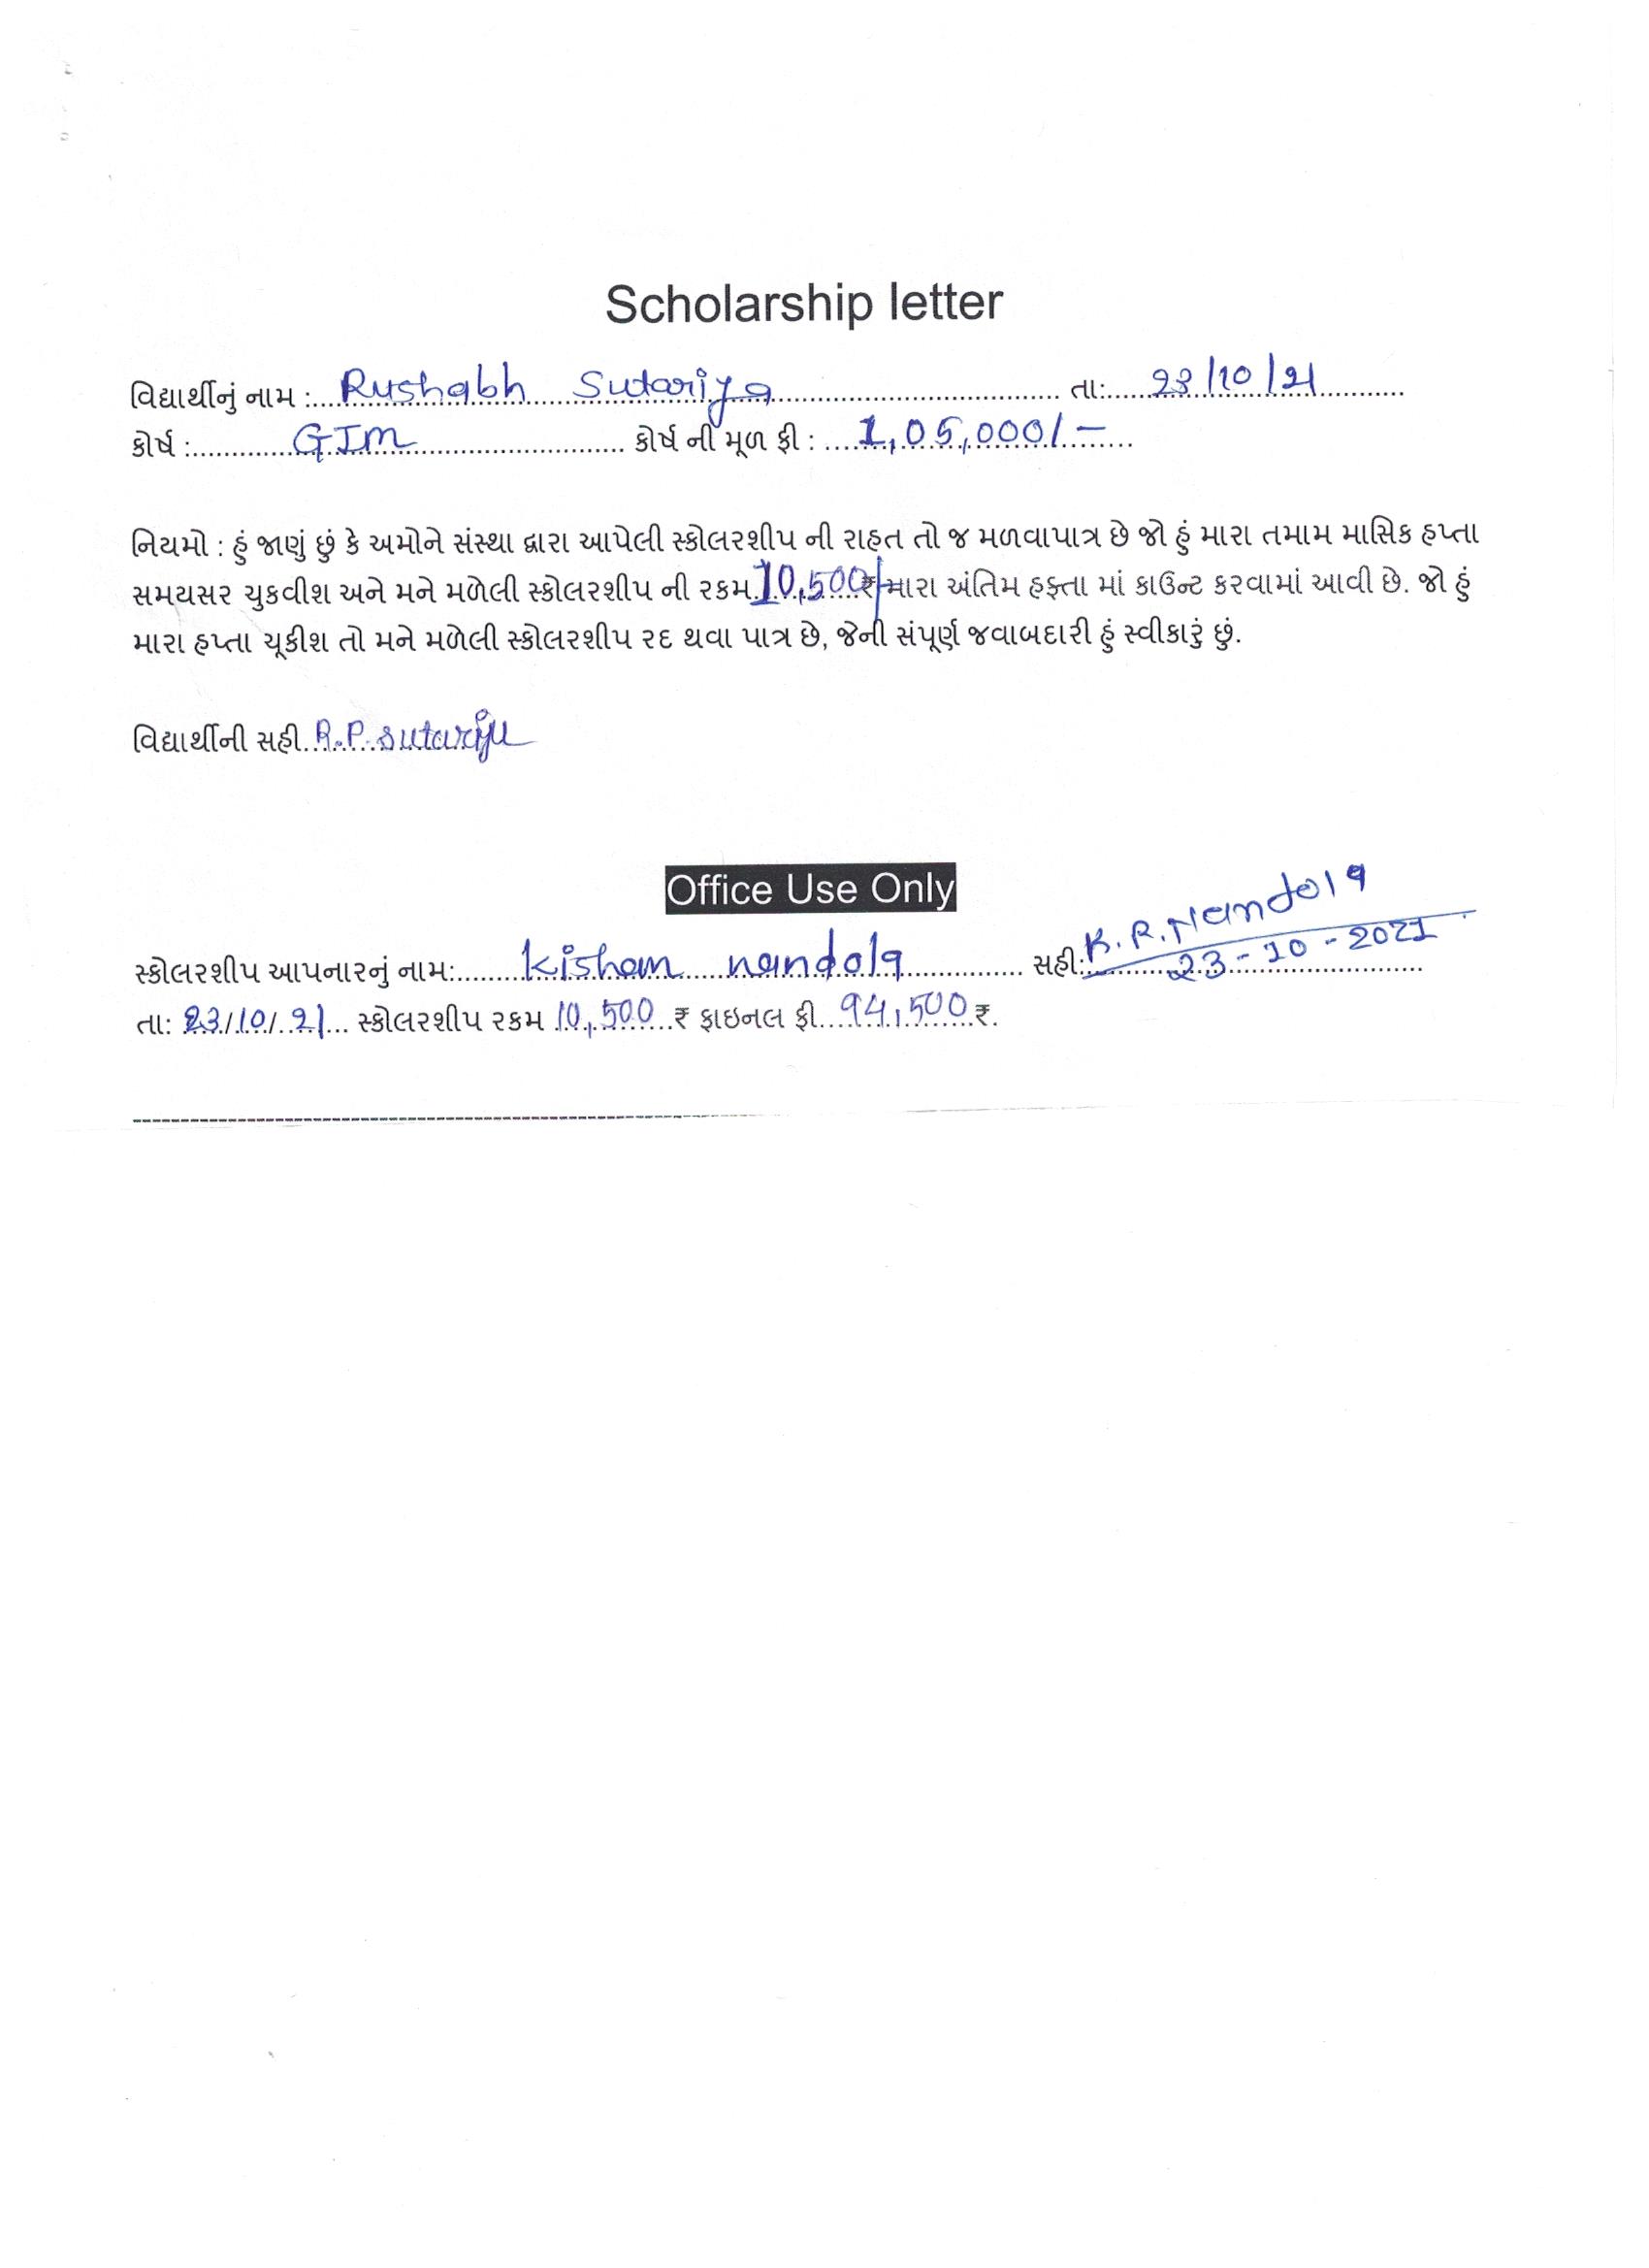 Scholarship letter
વિદ્યાર્થીનું નામ :....Rushabh Sutariya.... તા:....23/10/21....
કોર્ષ :....GIM.... કોર્ષ ની મૂળ ફી : ....1,05,000/-....
નિયમો : હું જાણું છું કે અમોને સંસ્થા દ્વારા આપેલી સ્કોલરશીપ ની રાહત તો જ મળવાપાત્ર છે જો હું મારા તમામ માસિક હપ્તા
સમયસર ચુકવીશ અને મને મળેલી સ્કોલરશીપ ની રકમ 10,500 ₹ મારા અંતિમ હફ્તા માં કાઉન્ટ કરવામાં આવી છે. જો હું
મારા હપ્તા ચૂકીશ તો મને મળેલી સ્કોલરશીપ રદ થવા પાત્ર છે, જેની સંપૂર્ણ જવાબદારી હું સ્વીકારું છું.
વિદ્યાર્થીની સહી....R.P.
Office Use Only
સ્કોલરશીપ આપનારનું નામ:.... nandola.... સહી:....K.R.Nandola
23-10-2021
તા: 23/10/21... સ્કોલરશીપ રકમ 10,500 ₹ ફાઇનલ ફી...94,500 ₹.